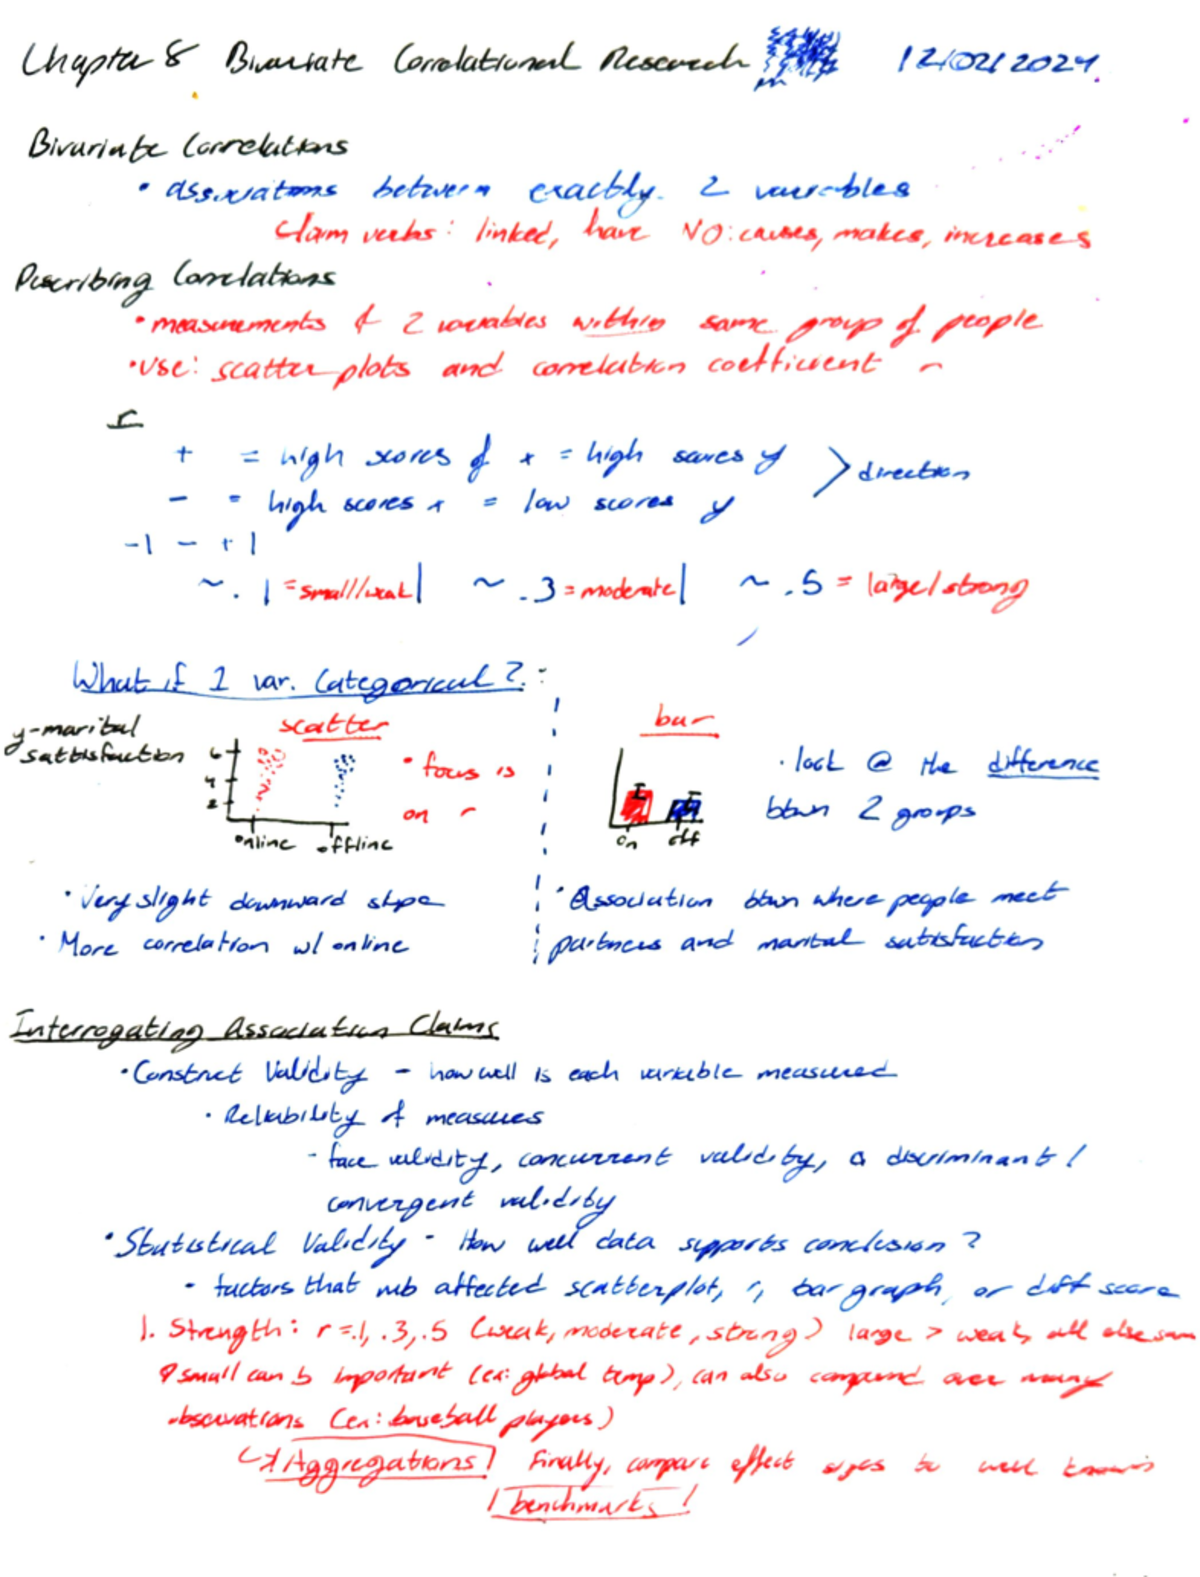 Chapter 8 Bivariate Correlational Research 12/02/2024
Bivariate Correlations
• associations between exactly 2 variables
Claim verbs: linked, have NO: causes, makes, increases
Describing Correlations
• measurements of 2 variables within same group of people
• use: scatter plots and correlation coefficient r
r
+ = high scores of x = high scores y > direction
- = high scores x = low scores y
-1 - +1
~.1 = small/weak | ~.3 = moderate | ~.5 = large/strong
What if 1 var. Categorical?:
y-marital satisfaction
scatter
6
4
2
online offline
• focus is
on r
• Very slight downward slope
• More correlation w/ online
bar
on off
• look @ the difference
btwn 2 groups
• Association btwn where people meet
partners and marital satisfaction
Interrogating Association Claims
• Construct Validity - how well is each variable measured
• Reliability of measures
- face validity, concurrent validity, a discriminant /
convergent validity
• Statistical Validity - How well data supports conclusion?
- factors that affected scatterplot, r, bar graph, or diff score
1. Strength: r = .1, .3, .5 (weak, moderate, strong) large > weak, all else same
small can b important (ex: global temp), can also compound over many
observations (ex: baseball players)
Aggregations! Finally, compare effect sizes to well known
! benchmarks !